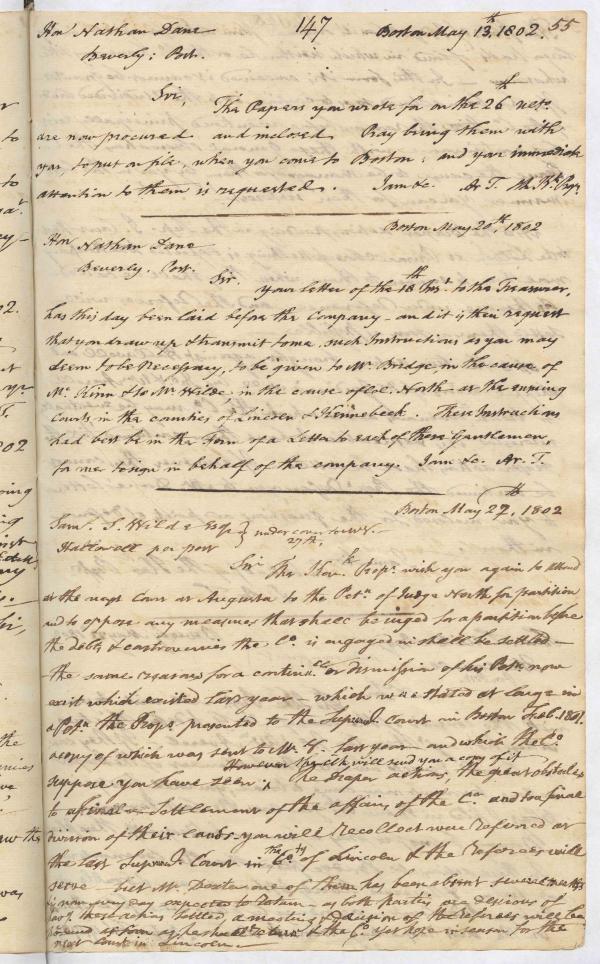 147
55
Hon.l Nathan Dane Boston May 13.th 1802.
Beverly; Post.
Sir, The Papers you wrote for on the 26th ult.o
are now procured and inclosed. Pray bring them with
you, to put on file, when you come to Boston; and your immediate
attention to them is requested. I am &c. Ar. T.
Boston May 20th, 1802
Hon. Nathan Dane
Beverly. Post.
Sir. your letter of the 18th Inst. to the Treasurer,
has this day been laid before the Company - and it is their request
that you draw up & transmit to me, such Instructions as you may
deem to be Necessary, to be given to Mr. Bridge, in the cause of
Mr. Kinn & to Mr. Wilde in the cause of Col. North - at the ensuing
Courts in the counties of Lincoln & Kennebeck. These Instructions
had best be in the Form of a Letter to each of these Gentlemen,
for me to sign in behalf of the company. I am &c. Ar. T.
Boston May 27th, 1802
Saml. S. Wilde Esqr. } under cover to
Hallowell per post } 27th.
Sir The Kenk. Propr. wish you again to attend
at the next Court at Augusta to the Petn. of Judge North for partition
and to oppose any measures that shall be urged for a partition before
the debts & controversies the Co. is engaged in shall be settled -
the same reasons for a contince. or dismission of his Petn. now
exist which existed last year - which were stated at large in
a Petn. the Propr. presented to the Supreme Court in Boston Feb. 1801.
a copy of which was sent to Mr. last year - and which the Co.
suppose you have seen; However they will send you a copy of it
The Draper actions, the great obstacles
to a final Settlement of the affairs of the Co. and to a final
division of their lands, you will recollect were referred at
the last Supreme Court in the Coty. of Lincoln & the Referees will
serve - but Mr. Dexter one of them has been absent several weeks
is now every day expected to return - as both parties are desirous of
these actions settled, a meeting & decision of the referees will be
as soon as he shall return & the Co. yet hope in season for the
next Court in Lincoln -